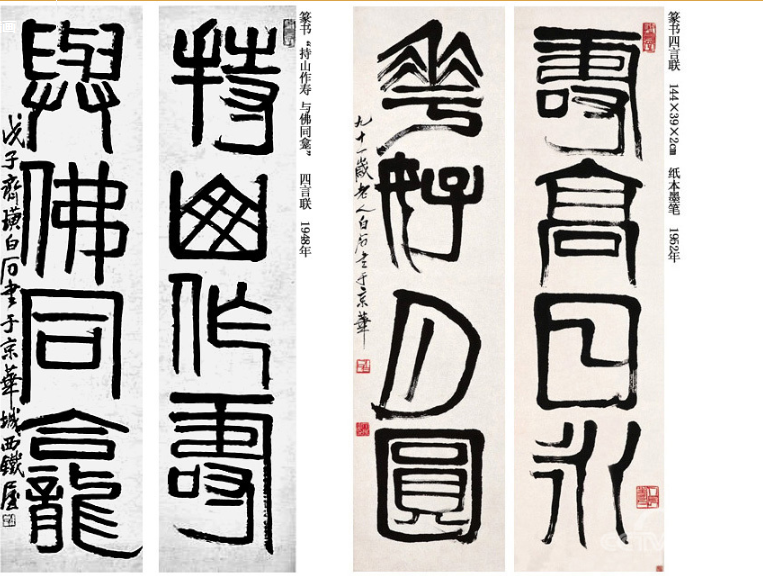 篆书四言联 144×39×2cm 纸本墨笔 1952年
壽高日永
華好月圓
九十一歲老人白石書于京華
篆书“持山作寿 与佛同龛” 四言联 1948年
持山作壽
與佛同龕
戊子齊璜白石書于京華城西鐵屋
CCTV